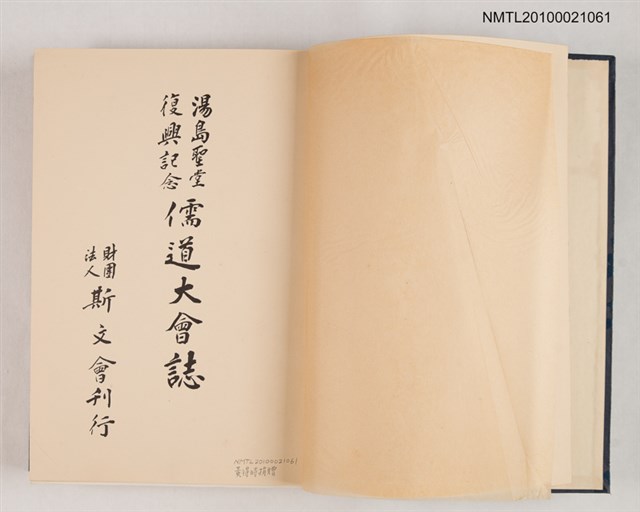 NMTL20100021061
湯島聖堂
復興記念
儒道大會誌
財團
法人
斯文會刊行
NMTL20100021061
黃得時捐贈